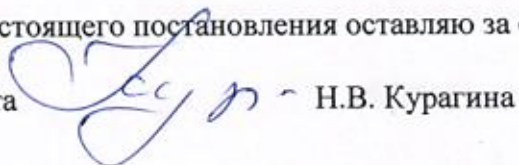 стоящего постановления оставляю за
та Н.В. Курагина